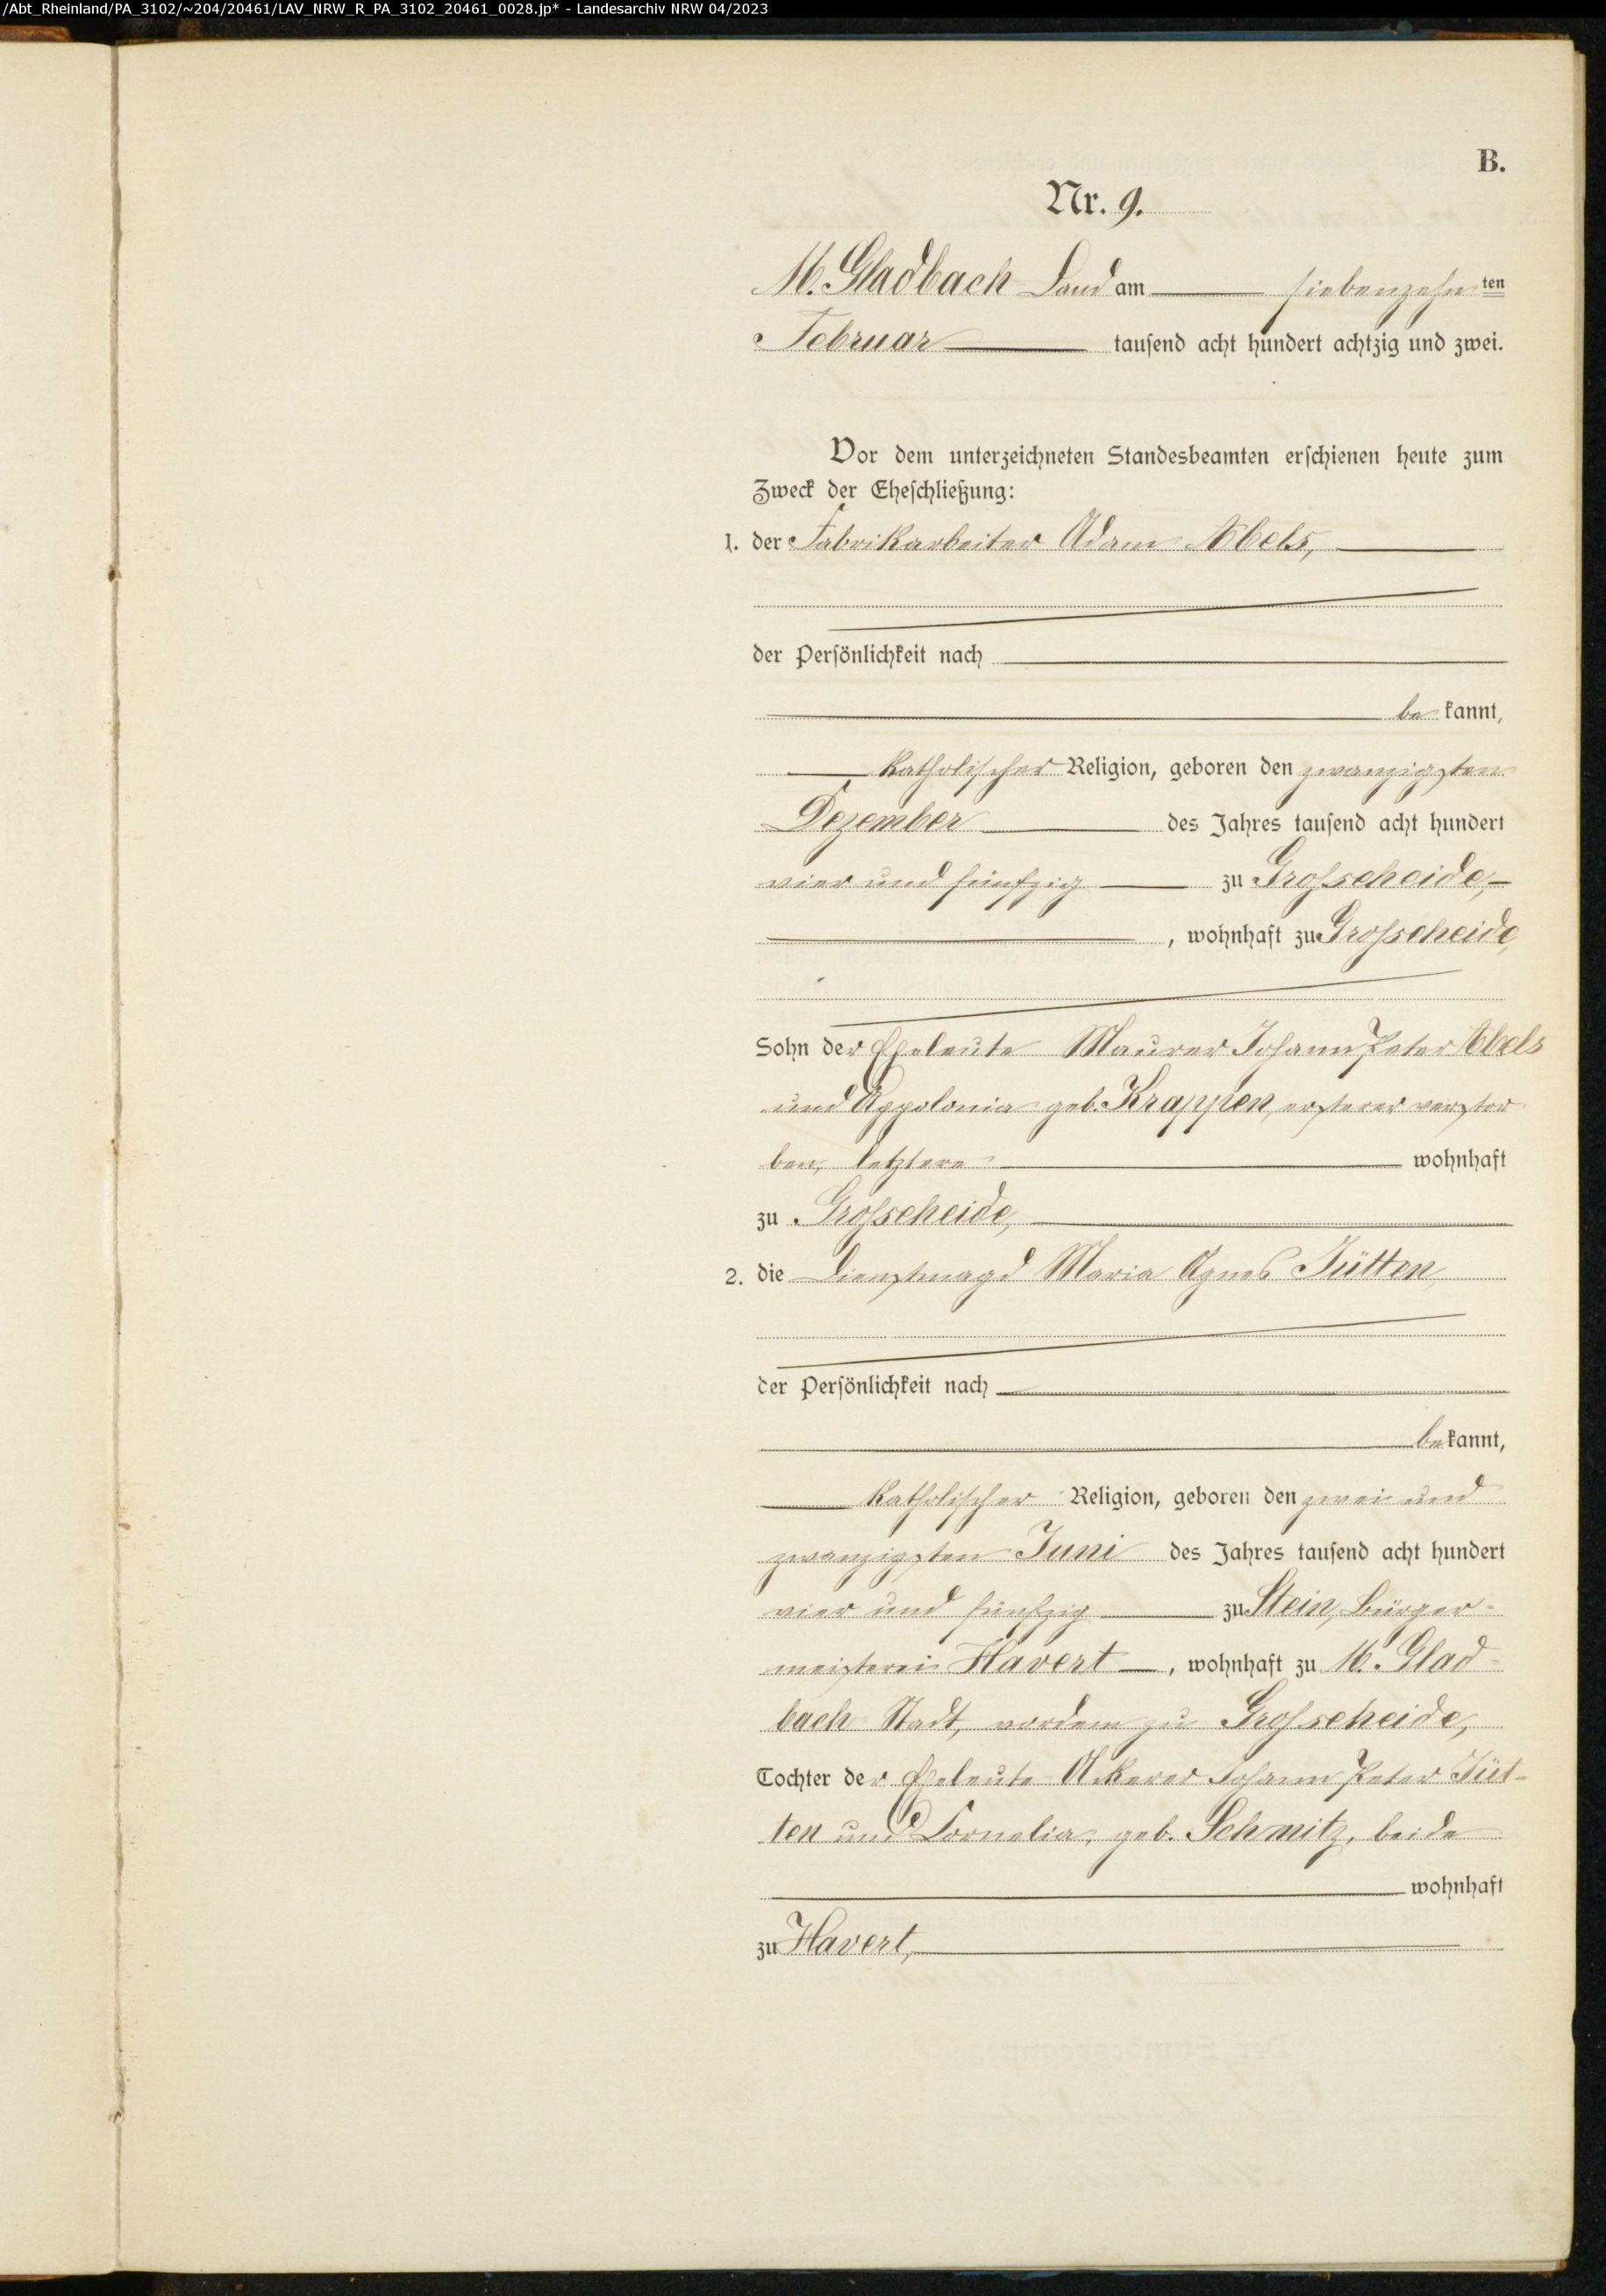 /Abt_Rheinland/PA_3102/~204/20461/LAV_NRW_R_PA_3102_20461_0028.jp* - Landesarchiv NRW 04/2023
B.
Nr. 9.
M. Gladbach Land am siebenzehn ten
Februar tausend acht hundert achtzig und zwei.
Vor dem unterzeichneten Standesbeamten erschienen heute zum
Zweck der Eheschließung:
1. der Fabrikarbeiter Adam Abels,
der Persönlichkeit nach
be kannt,
katholischer Religion, geboren den zwanzigsten
Dezember des Jahres tausend acht hundert
vier und fünfzig zu Grosscheide,
, wohnhaft zu Grosscheide,
Sohn der Eheleute Maurer Johann Peter Abels
und Appolonia geb. Krappen, ersterer verstor
ben, letztere wohnhaft
zu Grosscheide,
2. die Dienstmagd Maria Agnes Jütten,
der Persönlichkeit nach
bekannt,
katholischer Religion, geboren den zwei und
zwanzigsten Juni des Jahres tausend acht hundert
vier und fünfzig zu Stein, Bürger-
meisterei Havert, wohnhaft zu M. Glad-
bach Stadt, vordem zu Grosscheide,
Tochter der Eheleute Ackerer Johann Peter Jüt-
ten und Cornelia, geb. Schmitz, beide
wohnhaft
zu Havert,